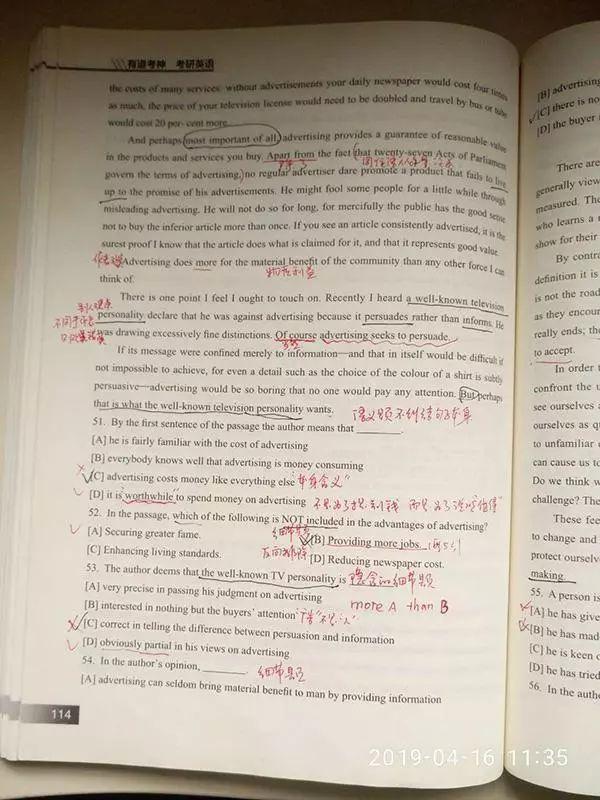 有道考神 考研英语
the costs of many services: without advertisements your daily newspaper would cost four times
as much, the price of your television license would need to be doubled and travel by bus or tube
would cost 20 per cent more.
And perhaps most important of all, advertising provides a guarantee of reasonable value
in the products and services you buy. Apart from the fact that twenty-seven Acts of Parliament
govern the terms of advertising, no regular advertiser dare promote a product that fails to live
up to the promise of his advertisements. He might fool some people for a little while through
misleading advertising. He will not do so for long, for mercifully the public has the good sense
not to buy the inferior article more than once. If you see an article consistently advertised, it is the
surest proof I know that the article does what is claimed for it, and that it represents good value.
Advertising does more for the material benefit of the community than any other force I can
物质利益
think of.
There is one point I feel I ought to touch on. Recently I heard a well-known television
personality declare that he was against advertising because it persuades rather than informs. He
was drawing excessively fine distinctions. Of course advertising seeks to persuade.
If its message were confined merely to information—and that in itself would be difficult if
not impossible to achieve, for even a detail such as the choice of the colour of a shirt is subtly
persuasive—advertising would be so boring that no one would pay any attention. But perhaps
that is what the well-known television personality wants.
51. By the first sentence of the passage the author means that
[A] he is fairly familiar with the cost of advertising
[B] everybody knows well that advertising is money consuming
[C] advertising costs money like everything else
[D] it is worthwhile to spend money on advertising
52. In the passage, which of the following is NOT included in the advantages of advertising?
细节题
[A] Securing greater fame. [B] Providing more jobs.
[C] Enhancing living standards. [D] Reducing newspaper cost.
53. The author deems that the well-known TV personality is 隐含的细节题
[A] very precise in passing his judgment on advertising
more A than B
[B] interested in nothing but the buyers' attention
[C] correct in telling the difference between persuasion and information
[D] obviously partial in his views on advertising
54. In the author's opinion, 细节题
[A] advertising can seldom bring material benefit to man by providing information
114
[B] advertising
[C] there is no
[D] the buyer
There are
generally view
measured. The
who learns a
show for their
By contra
definition it is
is not the road
as they encou
really ends; the
to accept.
In order t
confront the u
see ourselves a
ourselves as q
to unfamiliar
can cause us to
Do we think w
challenge? The
These feel
to change and
protect ourselve
making.
55. A person is
[A] he has give
[B] he has made
[C] he is keen o
[D] he has tried
56. In the autho
2019-04-16 11:35